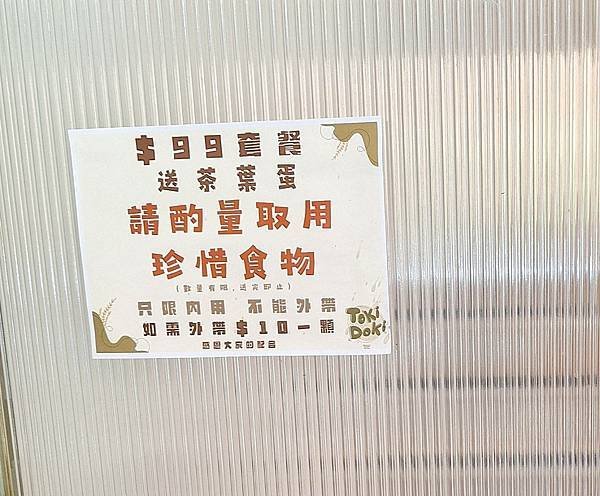 $99套餐
送茶葉蛋
請酌量取用
珍惜食物
(數量有限,送完即止)
只限內用 不能外帶
如需外帶$10一顆
感恩大家的配合
Toki
Doki